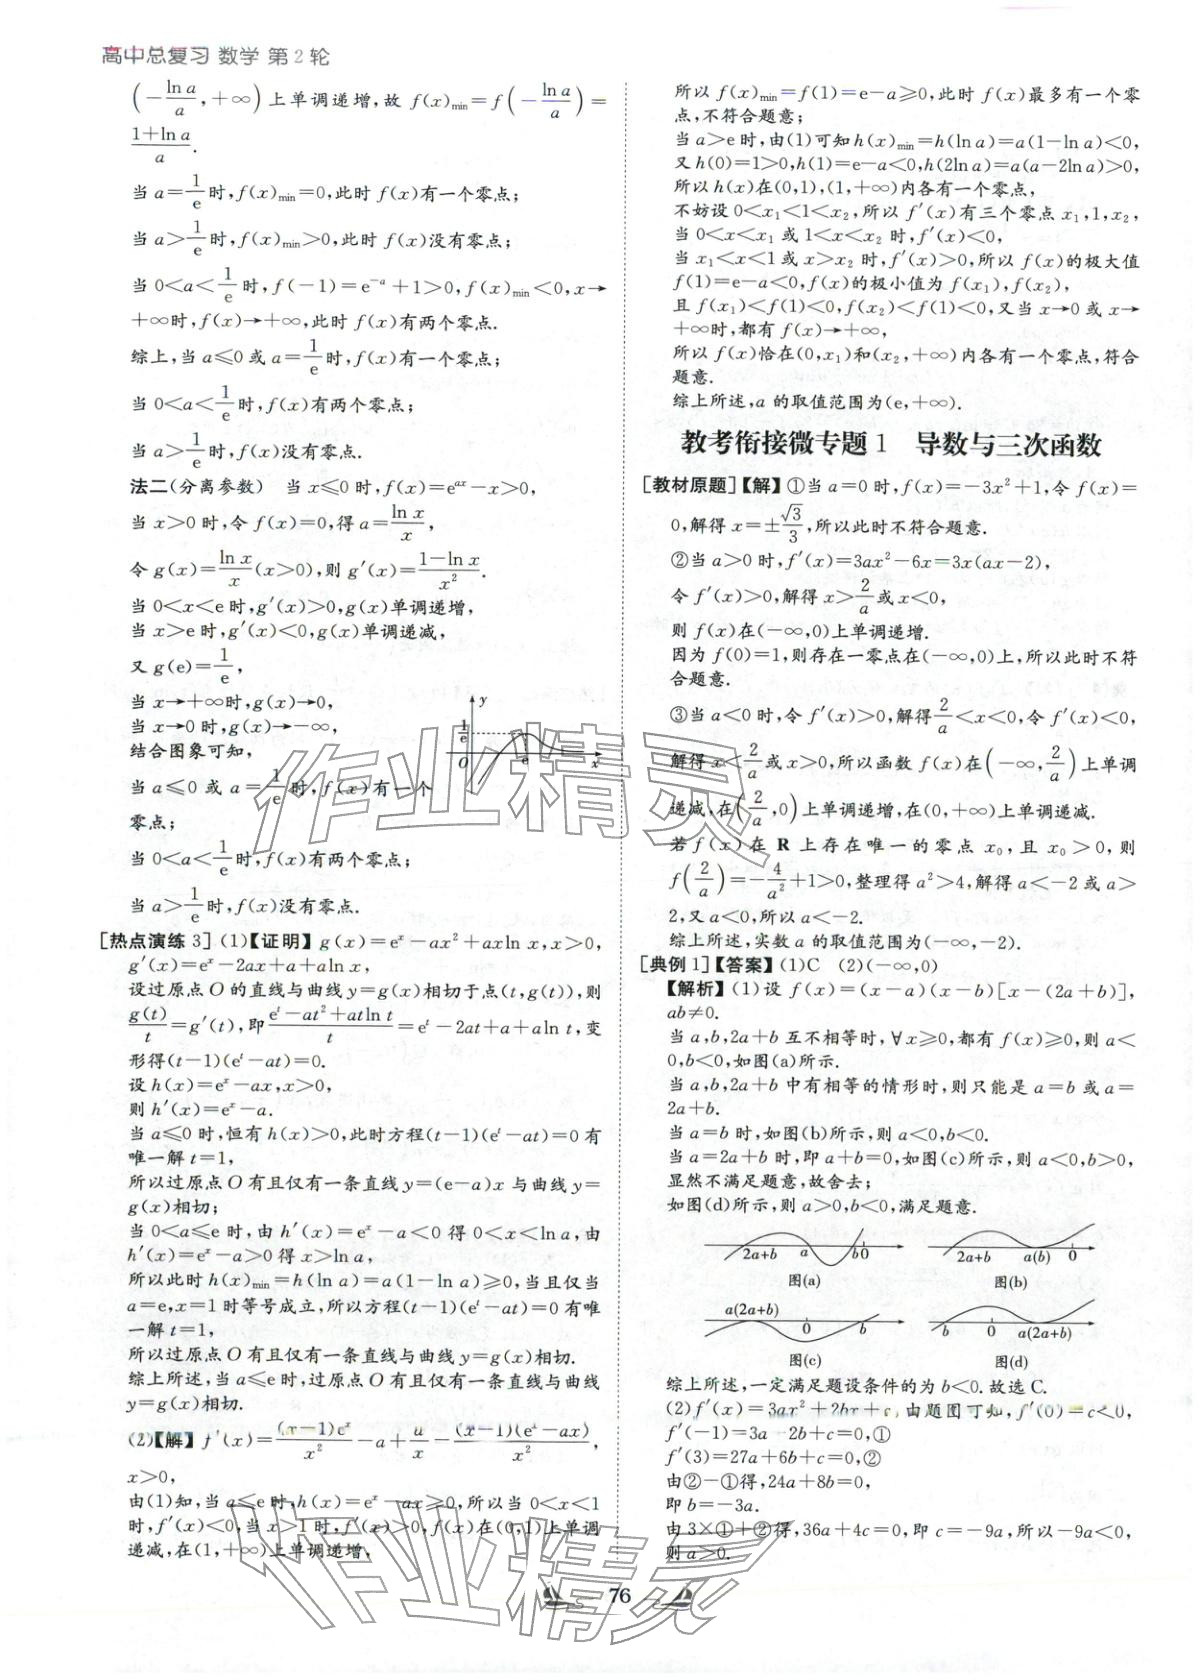 高中总复习 数学 第2轮
(-ln a/a,+∞)上单调递增,故 f(x)min=f(-ln a/a)=
1+ln a/a.
当 a=1/e时,f(x)min=0,此时 f(x)有一个零点;
当 a>1/e时,f(x)min>0,此时 f(x)没有零点;
当 0<a<1/e时,f(-1)=e⁻ᵃ+1>0,f(x)min<0,x→
+∞时,f(x)→+∞,此时 f(x)有两个零点.
综上,当 a≤0 或 a=1/e时,f(x)有一个零点;
当 0<a<1/e时,f(x)有两个零点;
当 a>1/e时,f(x)没有零点.
法二(分离参数) 当 x≤0 时,f(x)=eᵃˣ-x>0,
当 x>0 时,令 f(x)=0,得 a=ln x/x,
令 g(x)=ln x/x(x>0),则 g′(x)=1-ln x/x².
当 0<x<e 时,g′(x)>0,g(x)单调递增,
当 x>e 时,g′(x)<0,g(x)单调递减,
又 g(e)=1/e,
当 x→+∞时,g(x)→0,
当 x→0 时,g(x)→-∞,
结合图象可知,
当 a≤0 或 a=1/e时,f(x)有一个
零点;
当 0<a<1/e时,f(x)有两个零点;
当 a>1/e时,f(x)没有零点.
y
1/e
O
e
x
[热点演练 3] (1)【证明】 g(x)=eˣ-ax²+axln x,x>0,
g′(x)=eˣ-2ax+a+aln x,
设过原点 O 的直线与曲线 y=g(x)相切于点(t,g(t)),则
g(t)/t=g′(t),即eᵗ-at²+atln t/t=eᵗ-2at+a+aln t,变
形得(t-1)(eᵗ-at)=0.
设 h(x)=eˣ-ax,x>0,
则 h′(x)=eˣ-a.
当 a≤0 时,恒有 h(x)>0,此时方程(t-1)(eᵗ-at)=0 有
唯一解 t=1,
所以过原点 O 有且仅有一条直线 y=(e-a)x 与曲线 y=
g(x)相切;
当 0<a≤e 时,由 h′(x)=eˣ-a<0 得 0<x<ln a,由
h′(x)=eˣ-a>0 得 x>ln a,
所以此时 h(x)min=h(ln a)=a(1-ln a)≥0,当且仅当
a=e,x=1 时等号成立,所以方程(t-1)(eᵗ-at)=0 有唯
一解 t=1,
所以过原点 O 有且仅有一条直线与曲线 y=g(x)相切.
综上所述,当 a≤e 时,过原点 O 有且仅有一条直线与曲线
y=g(x)相切.
(2)【解】 f′(x)=(x-1)eˣ/x²-a+a/x=(x-1)(eˣ-ax)/x²,
x>0,
由(1)知,当 a≤e 时,h(x)=eˣ-ax≥0,所以当 0<x<1
时,f′(x)<0,当 x>1 时,f′(x)>0,f(x)在(0,1)上单调
递减,在(1,+∞)上单调递增,
所以 f(x)min=f(1)=e-a≥0,此时 f(x)最多有一个零
点,不符合题意;
当 a>e 时,由(1)可知 h(x)min=h(ln a)=a(1-ln a)<0,
又 h(0)=1>0,h(1)=e-a<0,h(2ln a)=a(a-2ln a)>0,
所以 h(x)在(0,1),(1,+∞)内各有一个零点,
不妨设 0<x₁<1<x₂,所以 f′(x)有三个零点 x₁,1,x₂,
当 0<x<x₁ 或 1<x<x₂ 时,f′(x)<0,
当 x₁<x<1 或 x>x₂ 时,f′(x)>0,所以 f(x)的极大值
f(1)=e-a<0,f(x)的极小值为 f(x₁),f(x₂),
且 f(x₁)<f(1)<0,f(x₂)<f(1)<0,又当 x→0 或 x→
+∞时,都有 f(x)→+∞,
所以 f(x)恰在(0,x₁)和(x₂,+∞)内各有一个零点,符合
题意.
综上所述,a 的取值范围为(e,+∞).
教考衔接微专题 1 导数与三次函数
[教材原题]【解】 ①当 a=0 时,f(x)=-3x²+1,令 f(x)=
0,解得 x=±√3/3,所以此时不符合题意.
②当 a>0 时,f′(x)=3ax²-6x=3x(ax-2),
令 f′(x)>0,解得 x>2/a或 x<0,
则 f(x)在(-∞,0)上单调递增.
因为 f(0)=1,则存在一零点在(-∞,0)上,所以此时不符
合题意.
③当 a<0 时,令 f′(x)>0,解得2/a<x<0,令 f′(x)<0,
解得 x<2/a或 x>0,所以函数 f(x)在(-∞,2/a)上单调
递减,在(2/a,0)上单调递增,在(0,+∞)上单调递减.
若 f(x) 在 R 上存在唯一的零点 x₀,且 x₀>0,则
f(2/a)=-4/a²+1>0,整理得 a²>4,解得 a<-2 或 a>
2,又 a<0,所以 a<-2.
综上所述,实数 a 的取值范围为(-∞,-2).
[典例 1]【答案】 (1)C (2)(-∞,0)
【解析】 (1)设 f(x)=(x-a)(x-b)[x-(2a+b)],
ab≠0.
当 a,b,2a+b 互不相等时,∀x≥0,都有 f(x)≥0,则 a<
0,b<0,如图(a)所示.
当 a,b,2a+b 中有相等的情形时,则只能是 a=b 或 a=
2a+b.
当 a=b 时,如图(b)所示,则 a<0,b<0.
当 a=2a+b 时,即 a+b=0,如图(c)所示,则 a<0,b>0,
显然不满足题意,故舍去;
如图(d)所示,则 a>0,b<0,满足题意.
2a+b a b 0
图(a)
2a+b a(b) 0
图(b)
a(2a+b) 0 b
图(c)
b 0 a(2a+b)
图(d)
综上所述,一定满足题设条件的为 b<0. 故选 C.
(2) f′(x)=3ax²+2bx+c,由题图可知,f′(0)=c<0,
f′(-1)=3a-2b+c=0,①
f′(3)=27a+6b+c=0,②
由②-①得,24a+8b=0,
即 b=-3a.
由 3×①+②得,36a+4c=0,即 c=-9a,所以-9a<0,
则 a>0.
76
作业精灵
作业精灵